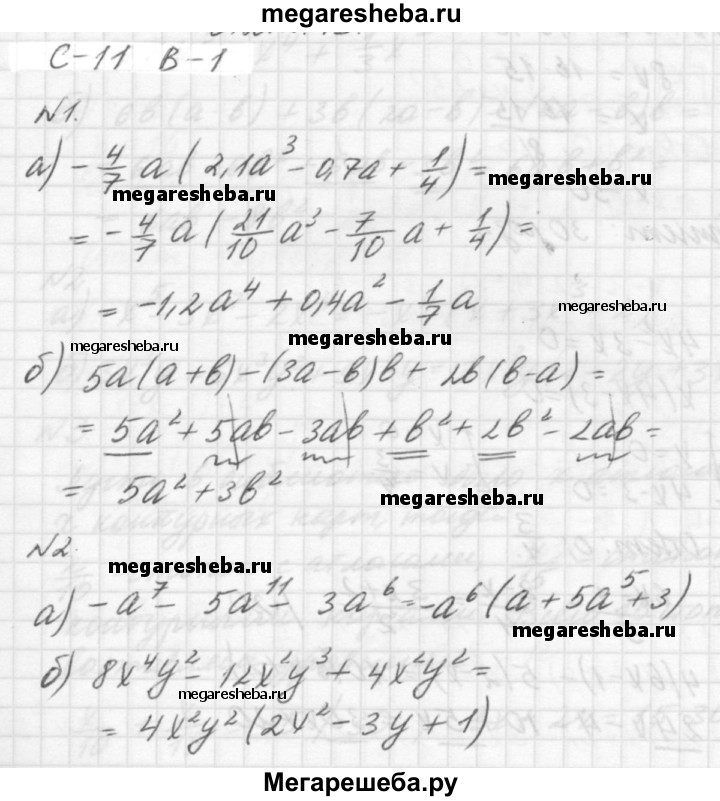 megaresheba.ru
С-11 В-1
№1.
а) -4/7 a(2,1a³ - 0,7a + 1/4) =
megaresheba.ru megaresheba.ru
= -4/7 a(21/10 a³ - 7/10 a + 1/4) =
= -1,2a⁴ + 0,4a² - 1/7 a
megaresheba.ru
megaresheba.ru
megaresheba.ru
б) 5a(a+b) - (3a-b)b + 2b(b-a) =
= 5a² + 5ab - 3ab + b² + 2b² - 2ab =
= 5a² + 3b²
megaresheba.ru
№2.
megaresheba.ru
а) -a⁷ - 5a¹¹ - 3a⁶ = -a⁶(a + 5a⁵ + 3)
megaresheba.ru
б) 8x⁴y² - 12x²y³ + 4x²y² =
megaresheba.ru
= 4x²y²(2x² - 3y + 1)
Мегарешеба.ру